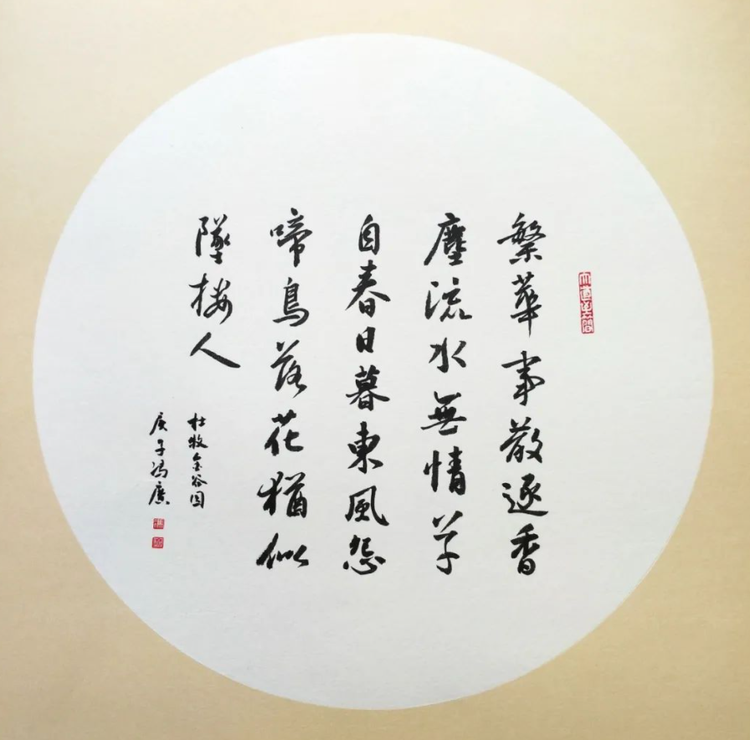 繁華事散逐香
塵流水無情草
自春日暮東風怨
啼鳥落花猶似
墜楼人
杜牧金谷园
庚子冯廉